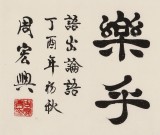 樂乎
語出論語
丁酉年初秋
周宏興